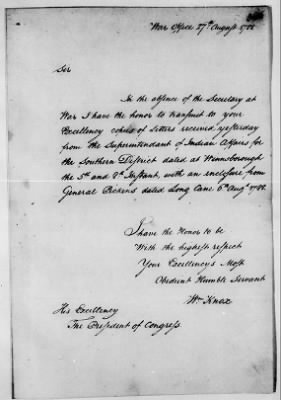 War Office 27th August 1788
Sir
In the absence of the Secretary at
War I have the honor to transmit to your
Excellency copies of Letters received yesterday
from the Superintendant of Indian Affairs for
the Southern District dated at Winnsborough
the 5th and 8th Instant, with an enclosure from
General Pickens dated Long Cane 6th Augt 1788.
I have the Honor to be
With the highest respect
Your Excellency's Most
Obedient Humble Servant
Wm Knox
His Excellency
The President of Congress